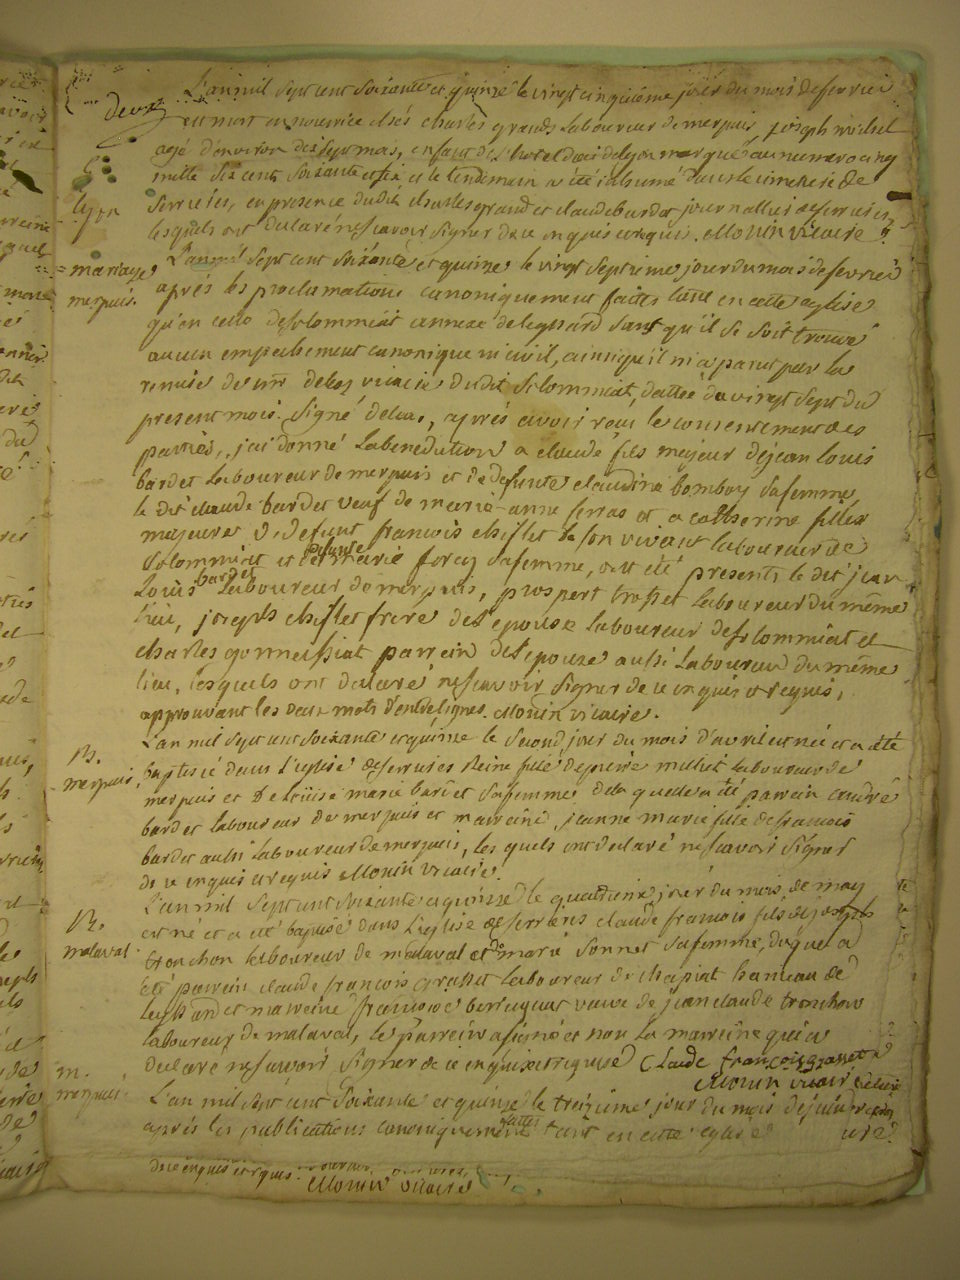 L'an mil sept cent soixante et quinze le vingt cinquième jour du mois de fevrier
deux
est mort en nourrice chés charles grand laboureur de merpuis, joseph
agé d'environ dix sept mois, enfant de l'hotel dieu de lyon marqué au numero cinq
mille six cent soixante et six et le lendemain a été inhumé dans le cimetière de
lyon
Serrières, en presence dudit charles grand et claude bardet journallier de serrieres,
lesquels ont declaré ne scavoir signer de ce enquis et requis. Monin vicaire
mariage
merpuis.
L'an mil sept cent soixante et quinze le vingt septième jour du mois de fevrier
après les proclamations canoniquement faites tant en cette eglise
qu'en celle de solommiat annexe de leyssard sans qu'il se soit trouvé
aucun empechement canonique ni civil, ainsi qu'il m'a parut par la
remise de mr vicaire dudit solommiat, dattée du vingt sept du
present mois. Signé, après avoir reçu le consentement des
parties, j'ai donné la benediction a claude fils majeur de jean louis
bardet laboureur de merpuis et de defunte claudine bomboy sa femme,
le dit claude bardet veuf de marie-anne ferras et a catherine fille
majeure de defunt françois chiflet de son vivant laboureur de
solommiat et de defunte marie forey sa femme, ont été presents le dit jean
Louis bardet laboureur de merpuis, prospert trosset laboureur du même
lieu, joseph chiflet frere de l'epouse laboureur de solommiat et
charles gonneissiat parrein de l'epouze aussi laboureur du même
lieu, lesquels ont declaré ne scavoir signer de ce enquis et requis,
approuvant les deux mots d'entrelignes. Monin vicaire.
B.
merpuis
L'an mil sept cent soixante et quinze le second jour du mois d'avril est née et a été
baptisée dans l'eglise de serrieres Reine fille de pierre millet laboureur de
merpuis et de louise marie bardet sa femme de laquelle a été parrein andré
bardet laboureur de merpuis et marreine, jeanne marie fille de francois
bardet aussi laboureur de merpuis, lesquels ont declaré ne scavoir signer
de ce enquis et requis Monin vicaire.
B.
malaval
L'an mil sept cent soixante et quinze le quatrieme jour du mois de may
est né et a été baptisé dans l'eglise de serrieres claude françois fils de joseph
tronchon laboureur de malaval et de marie sonnet sa femme, duquel a
été parrein claude françois grasset laboureur de chapiat hameau de
leyssard et marreine françoise veuve de jean claude tronchon
laboureur de malaval, le parrein a signé et non la marreine qui a
declaré ne scavoir signer de ce enquise et requise Claude françois grasset
Monin vicaire
m.
merpuis
L'an mil sept cent soixante et quinze le treizieme jour du mois de juin
après les publications canoniquement faittes tant en cette eglise
de ce enquis et requis.
Monin vicaire